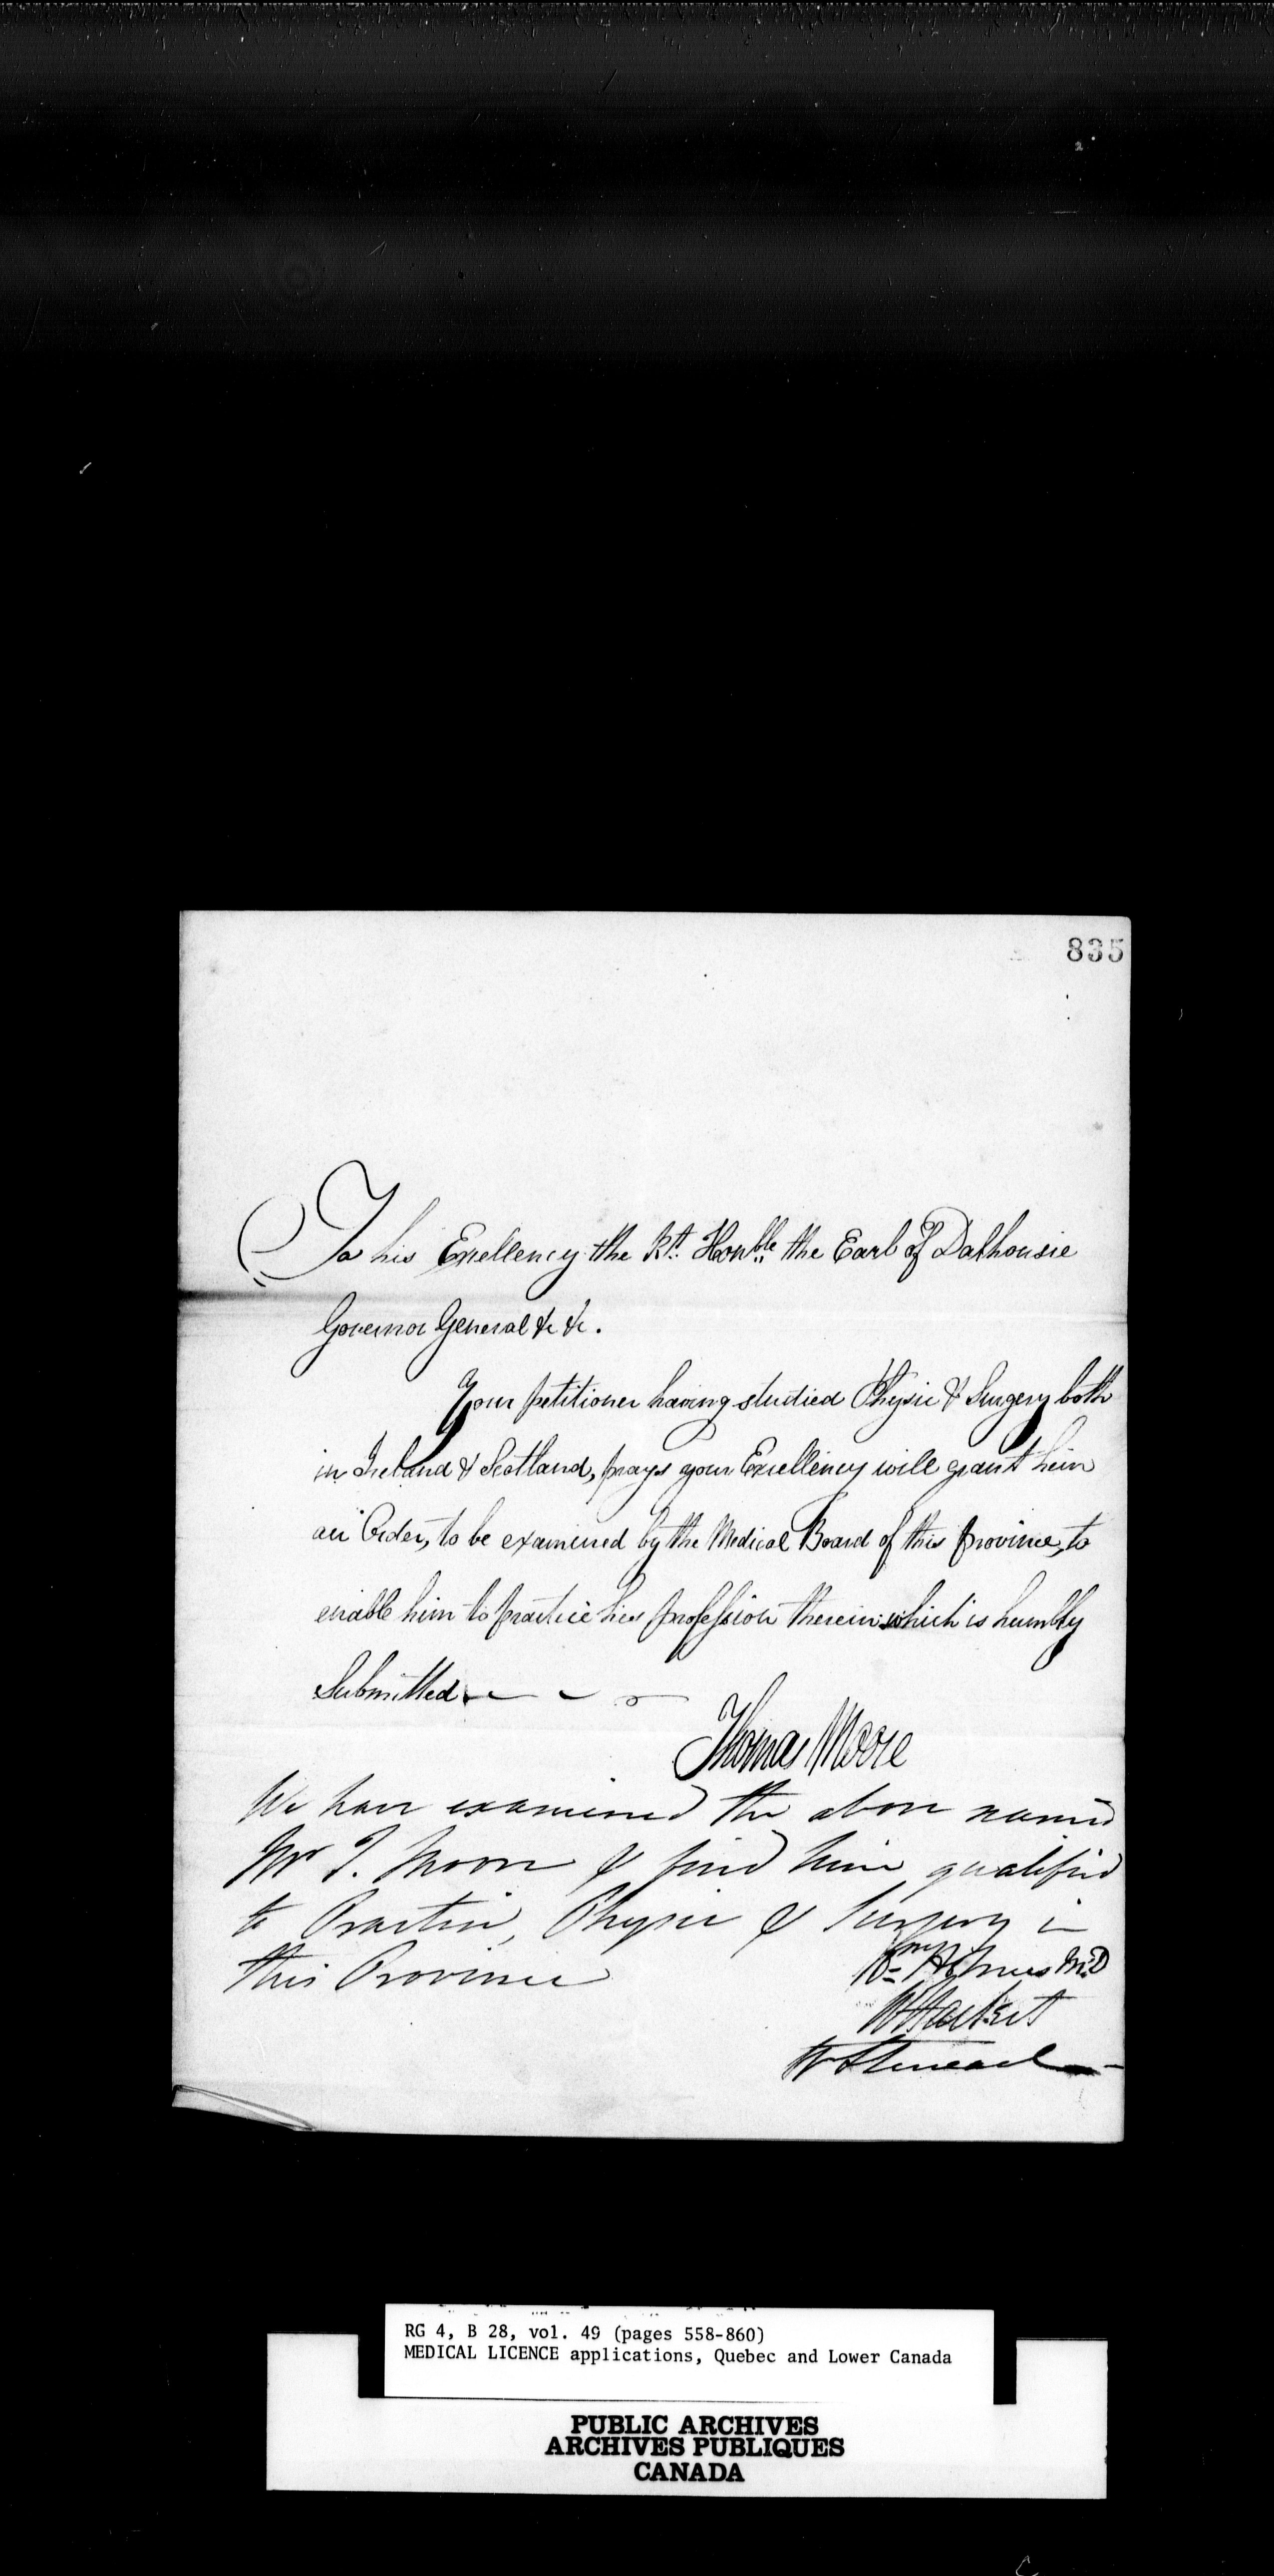 835
To his Exellency the Rt. Honble. the Earl of Dalhousie
Governor General &c &c.
Your petitioner having studied Physic & Surgery both
in Ireland & Scotland, prays your Excellency will grant him
an Order, to be examined by the Medical Board of this province, to
enable him to practice his profession therein which is humbly
Submitted
Thomas Moore
We have examined the above named
Mr T. Moore & find him qualified
to Practice, Physic & Surgery in
this Province
Wm Holmes M.D
W Hacket
RG 4, B 28, vol. 49 (pages 558-860)
MEDICAL LICENCE applications, Quebec and Lower Canada
PUBLIC ARCHIVES
ARCHIVES PUBLIQUES
CANADA